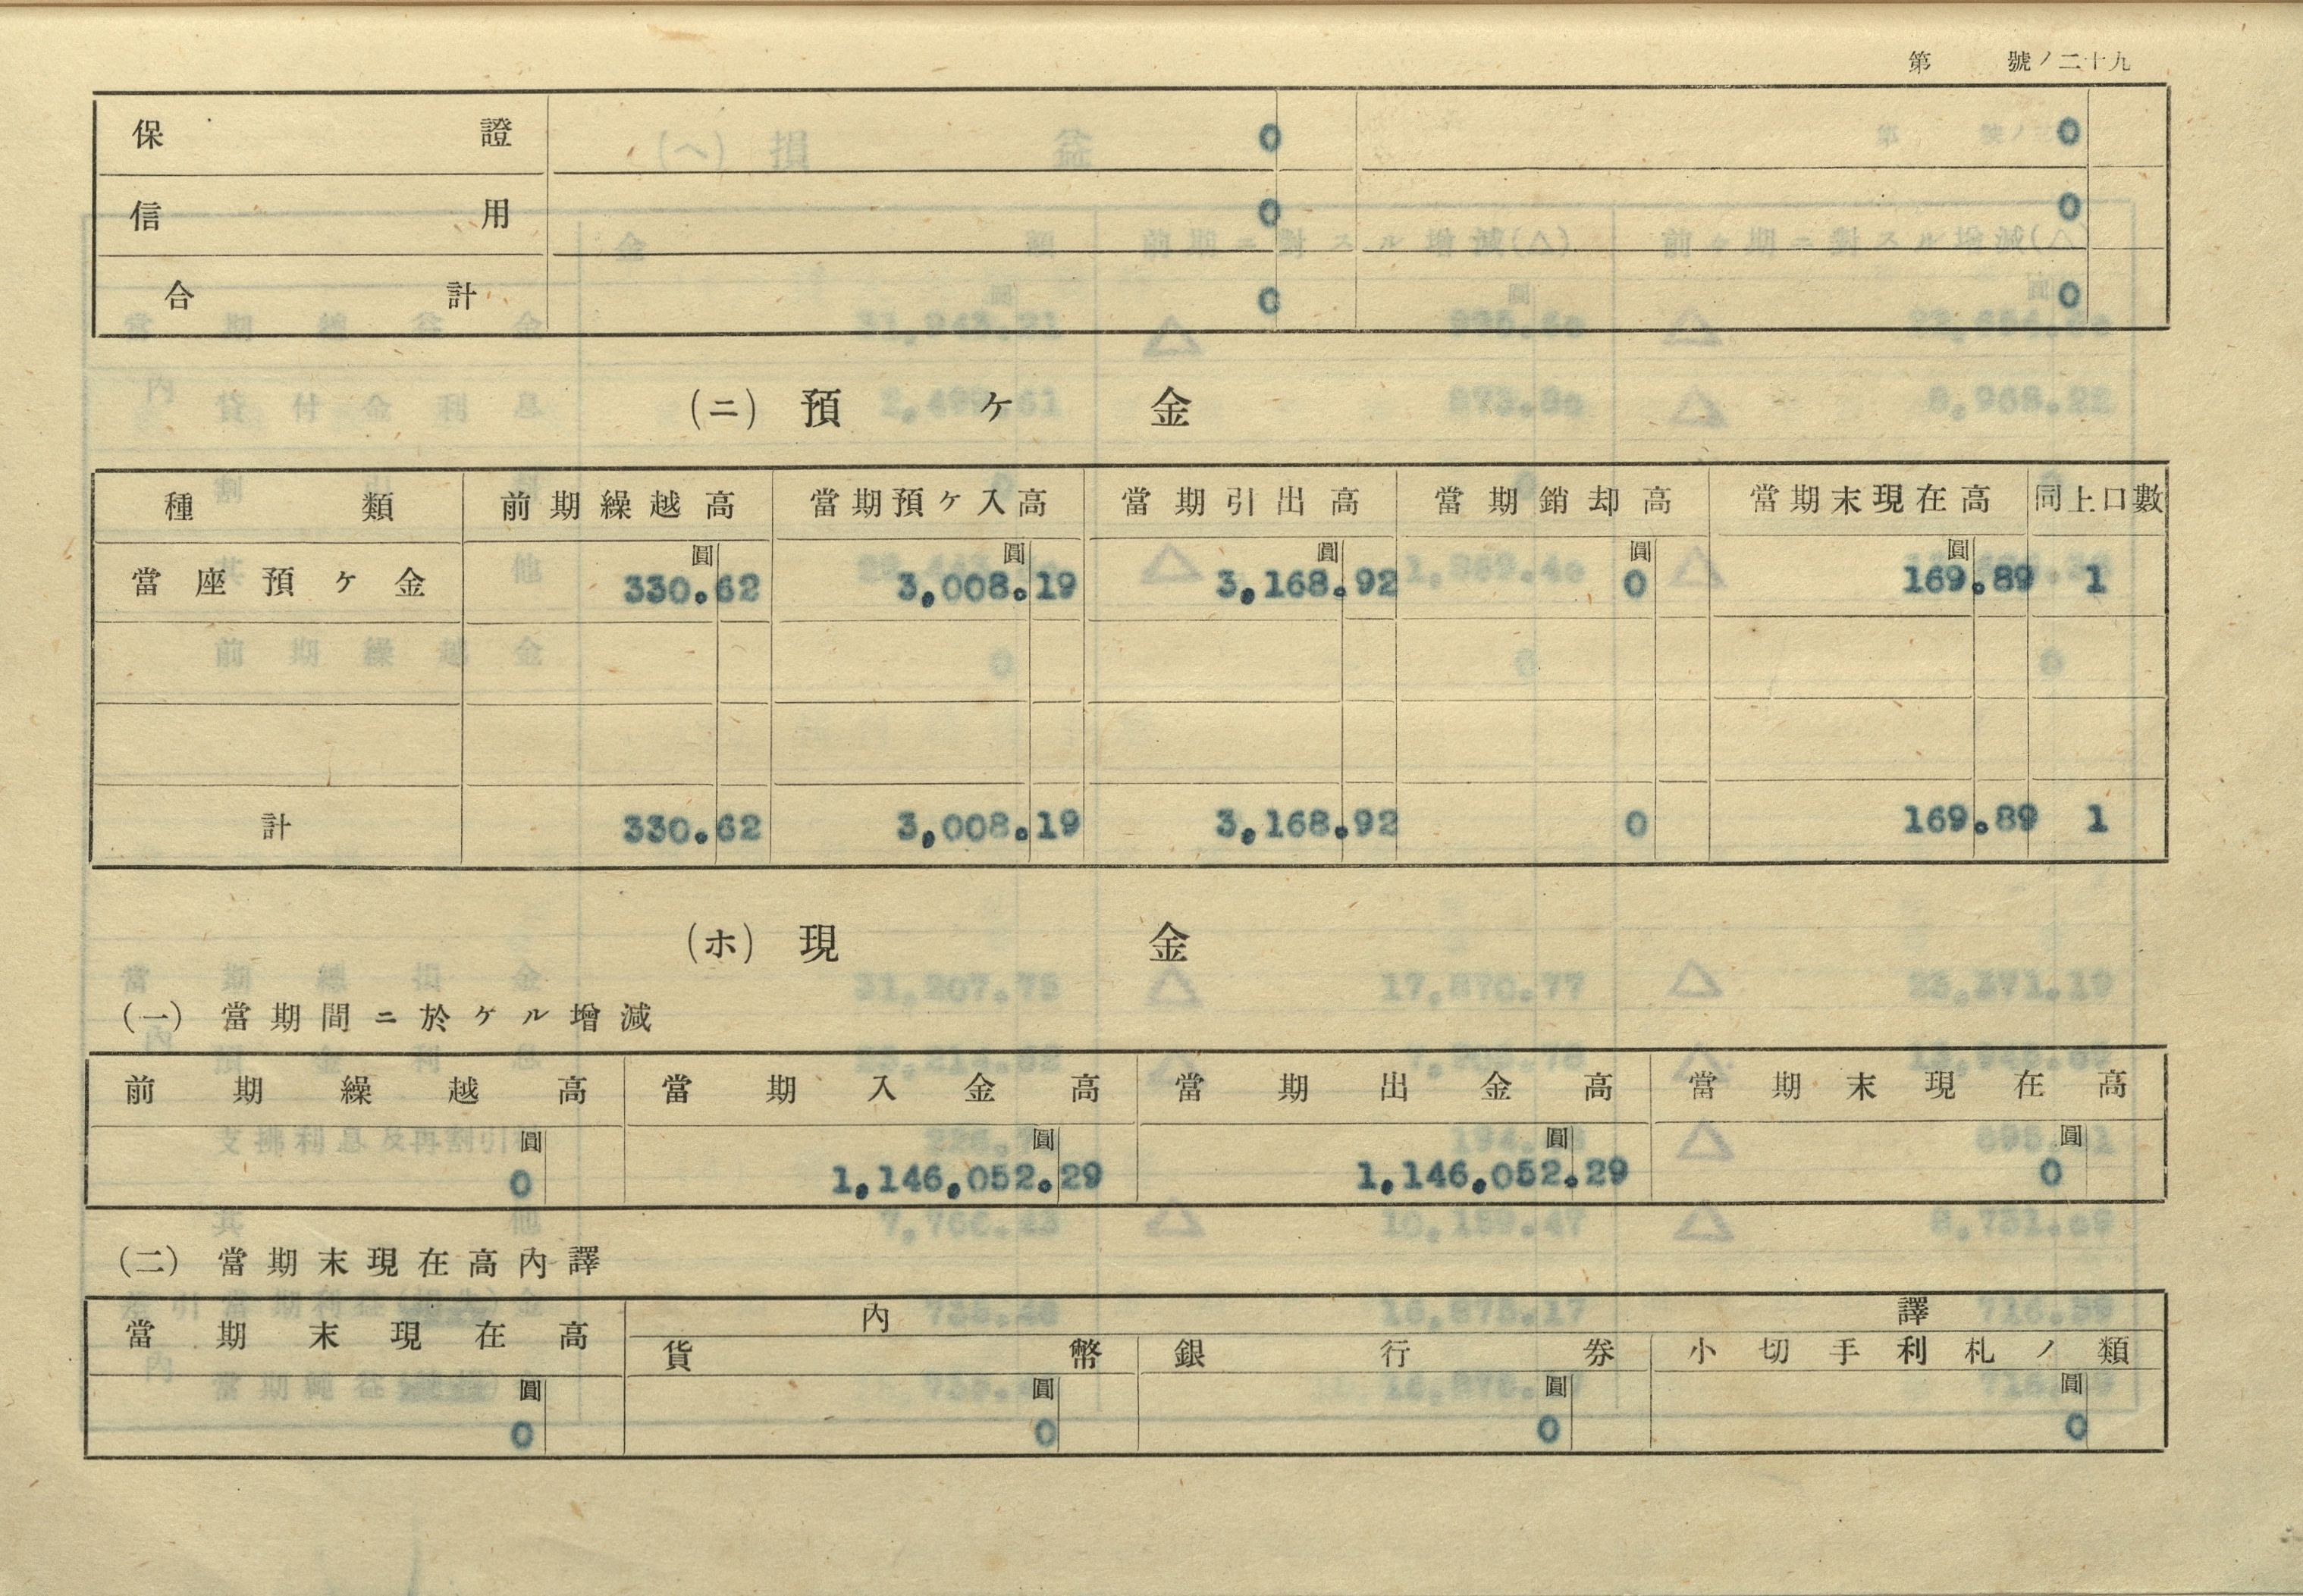 第 號ノ二十九
保證 0 0
信用 0 0
合計 0 0
(ニ) 預ケ金
種類 前期繰越高 當期預ケ入高 當期引出高 當期銷却高 當期末現在高 同上口數
圓 圓 圓 圓 圓
當座預ケ金 330.62 3,008.19 3,168.92 0 169.89 1
計 330.62 3,008.19 3,168.92 0 169.89 1
(ホ) 現金
(一) 當期間ニ於ケル增減
前期繰越高 當期入金高 當期出金高 當期末現在高
圓 圓 圓 圓
0 1,146,052.29 1,146,052.29 0
(二) 當期末現在高內譯
當期末現在高 內譯
貨幣 銀行券 小切手利札ノ類
圓 圓 圓 圓
0 0 0 0